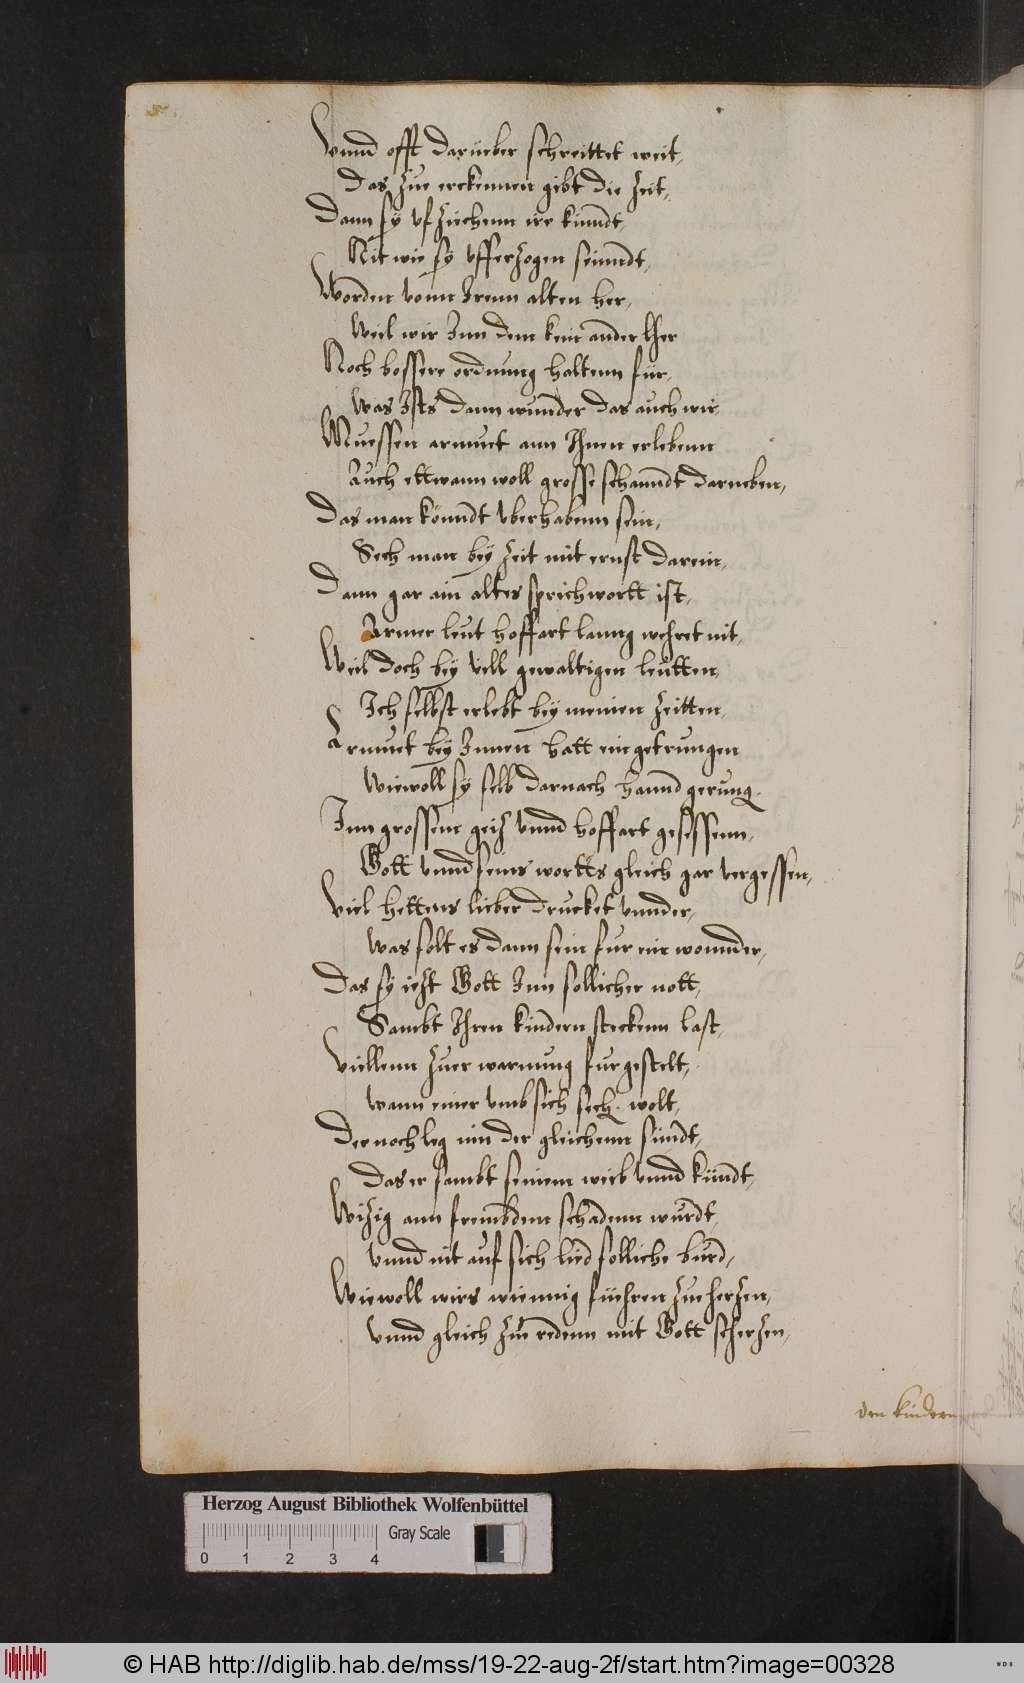 Vnnd offt darüeber schreittet weit,
Das zue erckennen gibt die Zeit,
Dann sÿ vfziechenn ire kinndt,
Nit wie sÿ vfferzogen seinndt,
Worden vonn Irenn alten her,
Weil wir Inn dem kein ander lher
Noch bessere ordnung haltenn für,
Was Ists dann wunder das auch wir
Muessen armuet ann Ihnen erlebenn
Auch ettwann woll grosse schanndt darneben,
Das man könndt vberhabenn sein,
Sech man beÿ Zeit mit ernst darein,
Dann gar ain altes sprichwortt ist,
Armer leut hoffart lanng wehret nit,
Weil doch beÿ vill gewaltigen leütten,
Ich selbst erlebt beÿ meinen Zeitten,
Armuet beÿ Innen hatt eingetrungen
Wiewoll sÿ selb darnach hannd gerung.
Inn grossem geiz vnnd hoffart gesessenn,
Gott vnnd seins wortts gleich gar vergessen,
Viel hettens lieber drucket vnnder,
Was solt es dann sein fur ein wonnder,
Das sÿ iezt Gott Inn sollicher nott,
Sambt Ihren kindern steckenn last,
Viellenn zuer warnung furgestelt,
Wann einer vmb sich sech. wolt,
Der noch leg inn der gleichenn sündt,
Das er sambt seinem weib vnnd kündt,
Wizig ann frembdem schadenn wurdt,
Vnnd nit auf sich lied solliche burd,
Wiewoll wirs wiennig füehren zue herzen,
Vnnd gleich zue redenn mit Gott scherzen,
den kindern
Herzog August Bibliothek Wolfenbüttel
Gray Scale
0 1 2 3 4
© HAB http://diglib.hab.de/mss/19-22-aug-2f/start.htm?image=00328